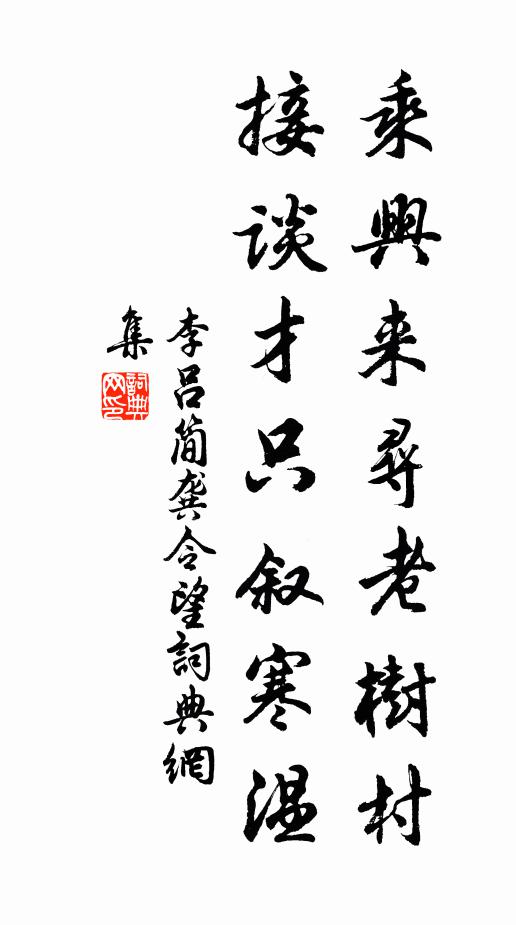 乘興来尋老樹村
接談才只叙寒温
李呂簡龔令望詞典網
集
詞典网印